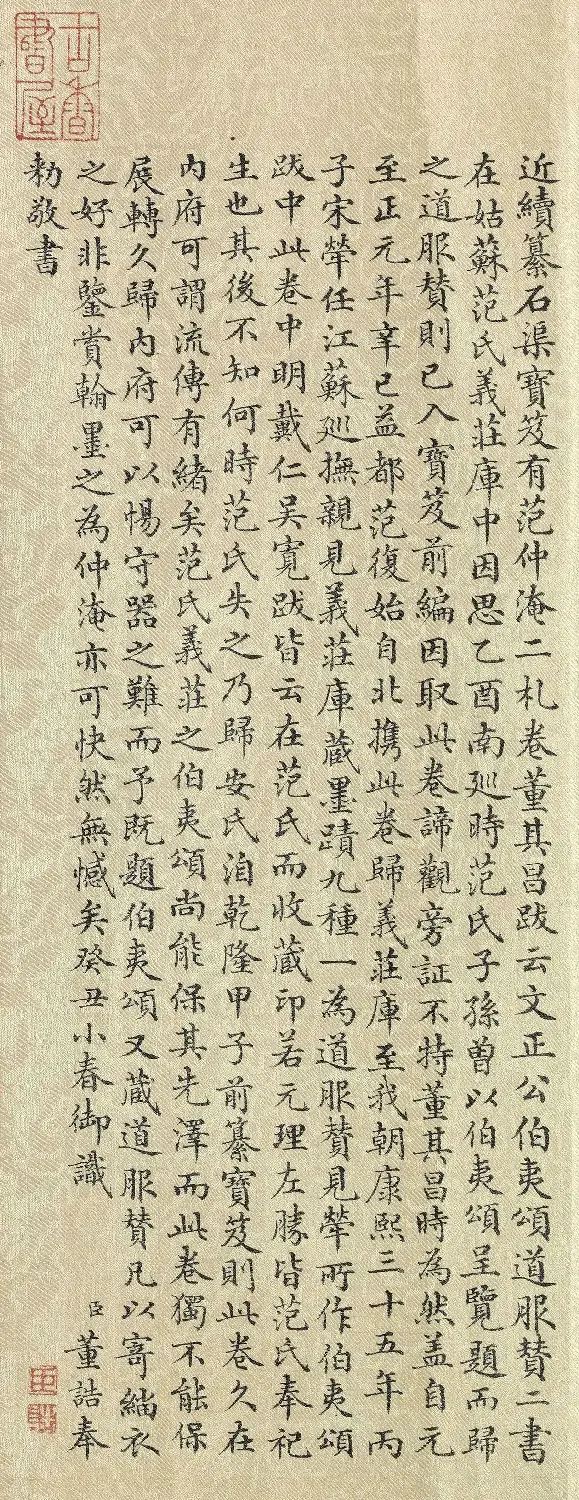 近續纂石渠寶笈有范仲淹二札卷董其昌跋云文正公伯夷頌道服贊二書
在姑蘇范氏義莊庫中因思乙酉南廵時范氏子孫曾以伯夷頌呈覽題而歸
之道服贊則已入寶笈前編因取此卷諦觀旁証不特董其昌時為然蓋自元
至正元年辛巳益都范復始自北携此卷歸義莊庫至我朝康熙三十五年丙
子宋犖任江蘇廵撫親見義莊庫藏墨蹟九種一為道服贊見犖所作伯夷頌
跋中此卷中明戴仁吴寛跋皆云在范氏而收藏印若元理左勝皆范氏奉祀
生也其後不知何時范氏失之乃歸安氏洎乾隆甲子前纂寶笈則此卷久在
内府可謂流傳有緒矣范氏義莊之伯夷頌尚能保其先澤而此卷獨不能保
展轉久歸内府可以惕守器之難而予既題伯夷頌又藏道服贊凡以寄緇衣
之好非鑒賞翰墨之為仲淹亦可快然無憾矣癸丑小春御識
臣董誥奉
勑敬書
古香書屋